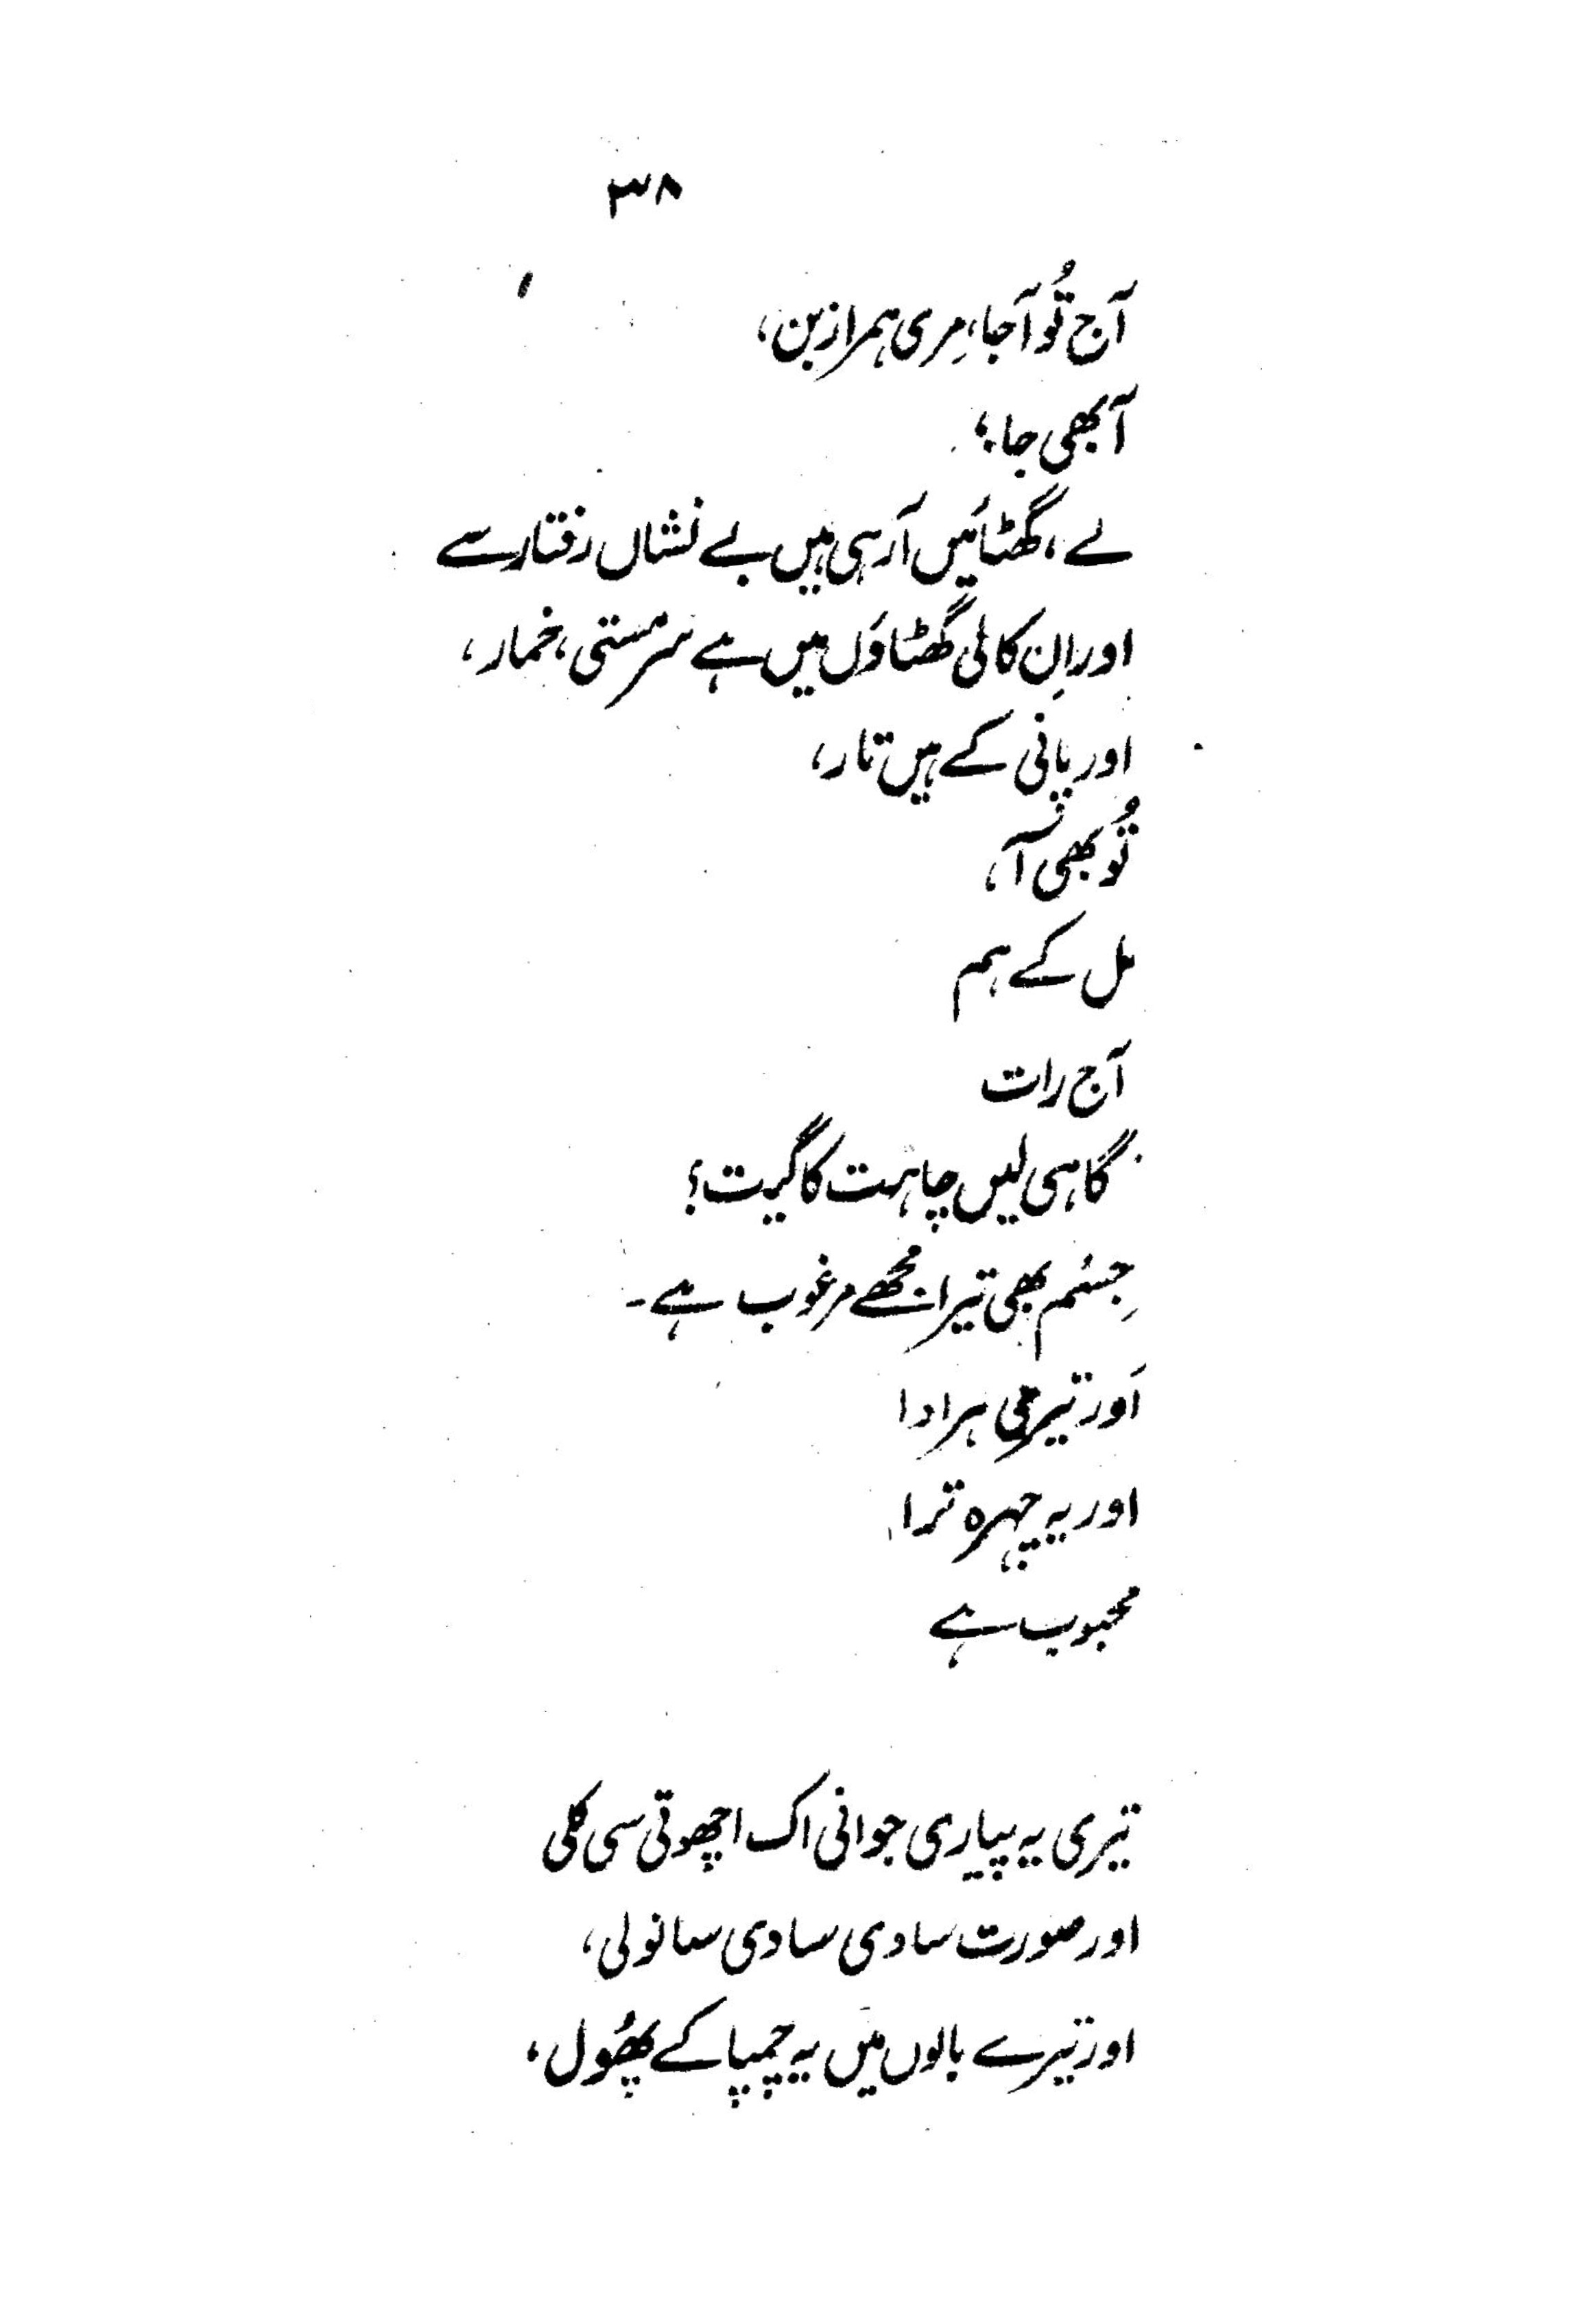 ۳۸
آج تُو آجا، مِری ہمراز بن،
آ بھی جا؛
لے، گھٹائیں آرہی ہیں بے نشاں رفتار سے
اور اِن کالی گھٹاؤں میں ہے سرمستی، خمار،
اور پانی کے ہیں تار،
تُو بھی آ،
مل کے ہم
آج رات
گا ہی لیں چاہت کا گیت؛
جِسم بھی تیرا مجھے مرغوب ہے۔
اَور تیری ہر ادا
اور یہ چہرہ ترا
محبوب ہے
تیری یہ پیاری جوانی اک اچھوتی سی کلی
اور صورت سادی سادی سانولی،
اور تیرے بالوں میں یہ چمپا کے پھُول،